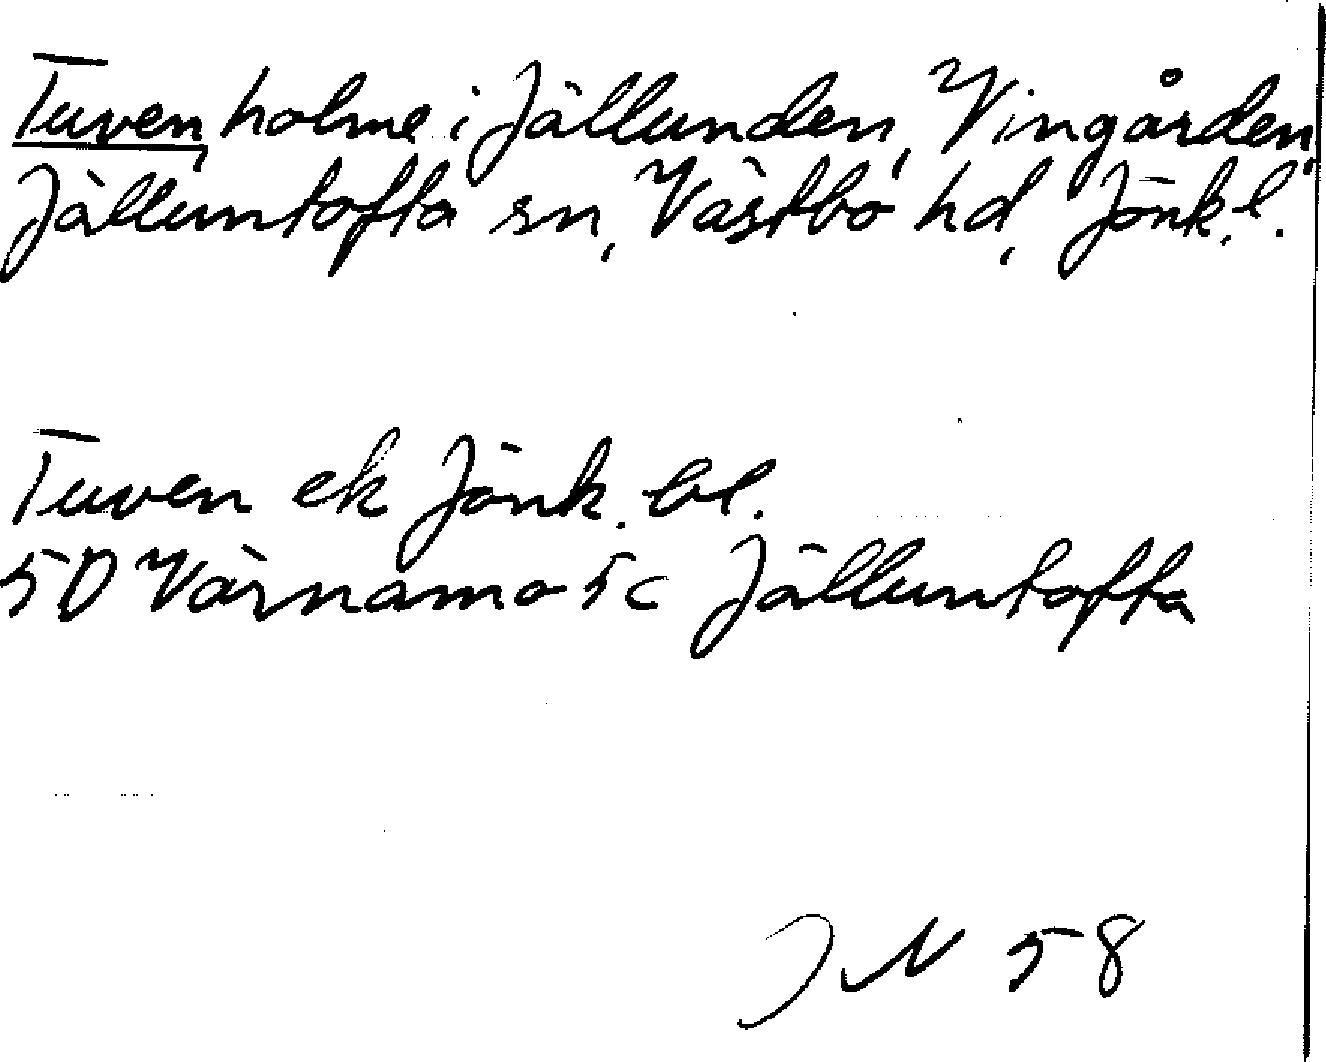 Tuven, holme i Jällunden, Vingården,
Jälluntofta sn, Västbo hd, Jönk.l.
Tuven ek Jönk. bl.
5D Värnamo 5c Jälluntofta
JN 58